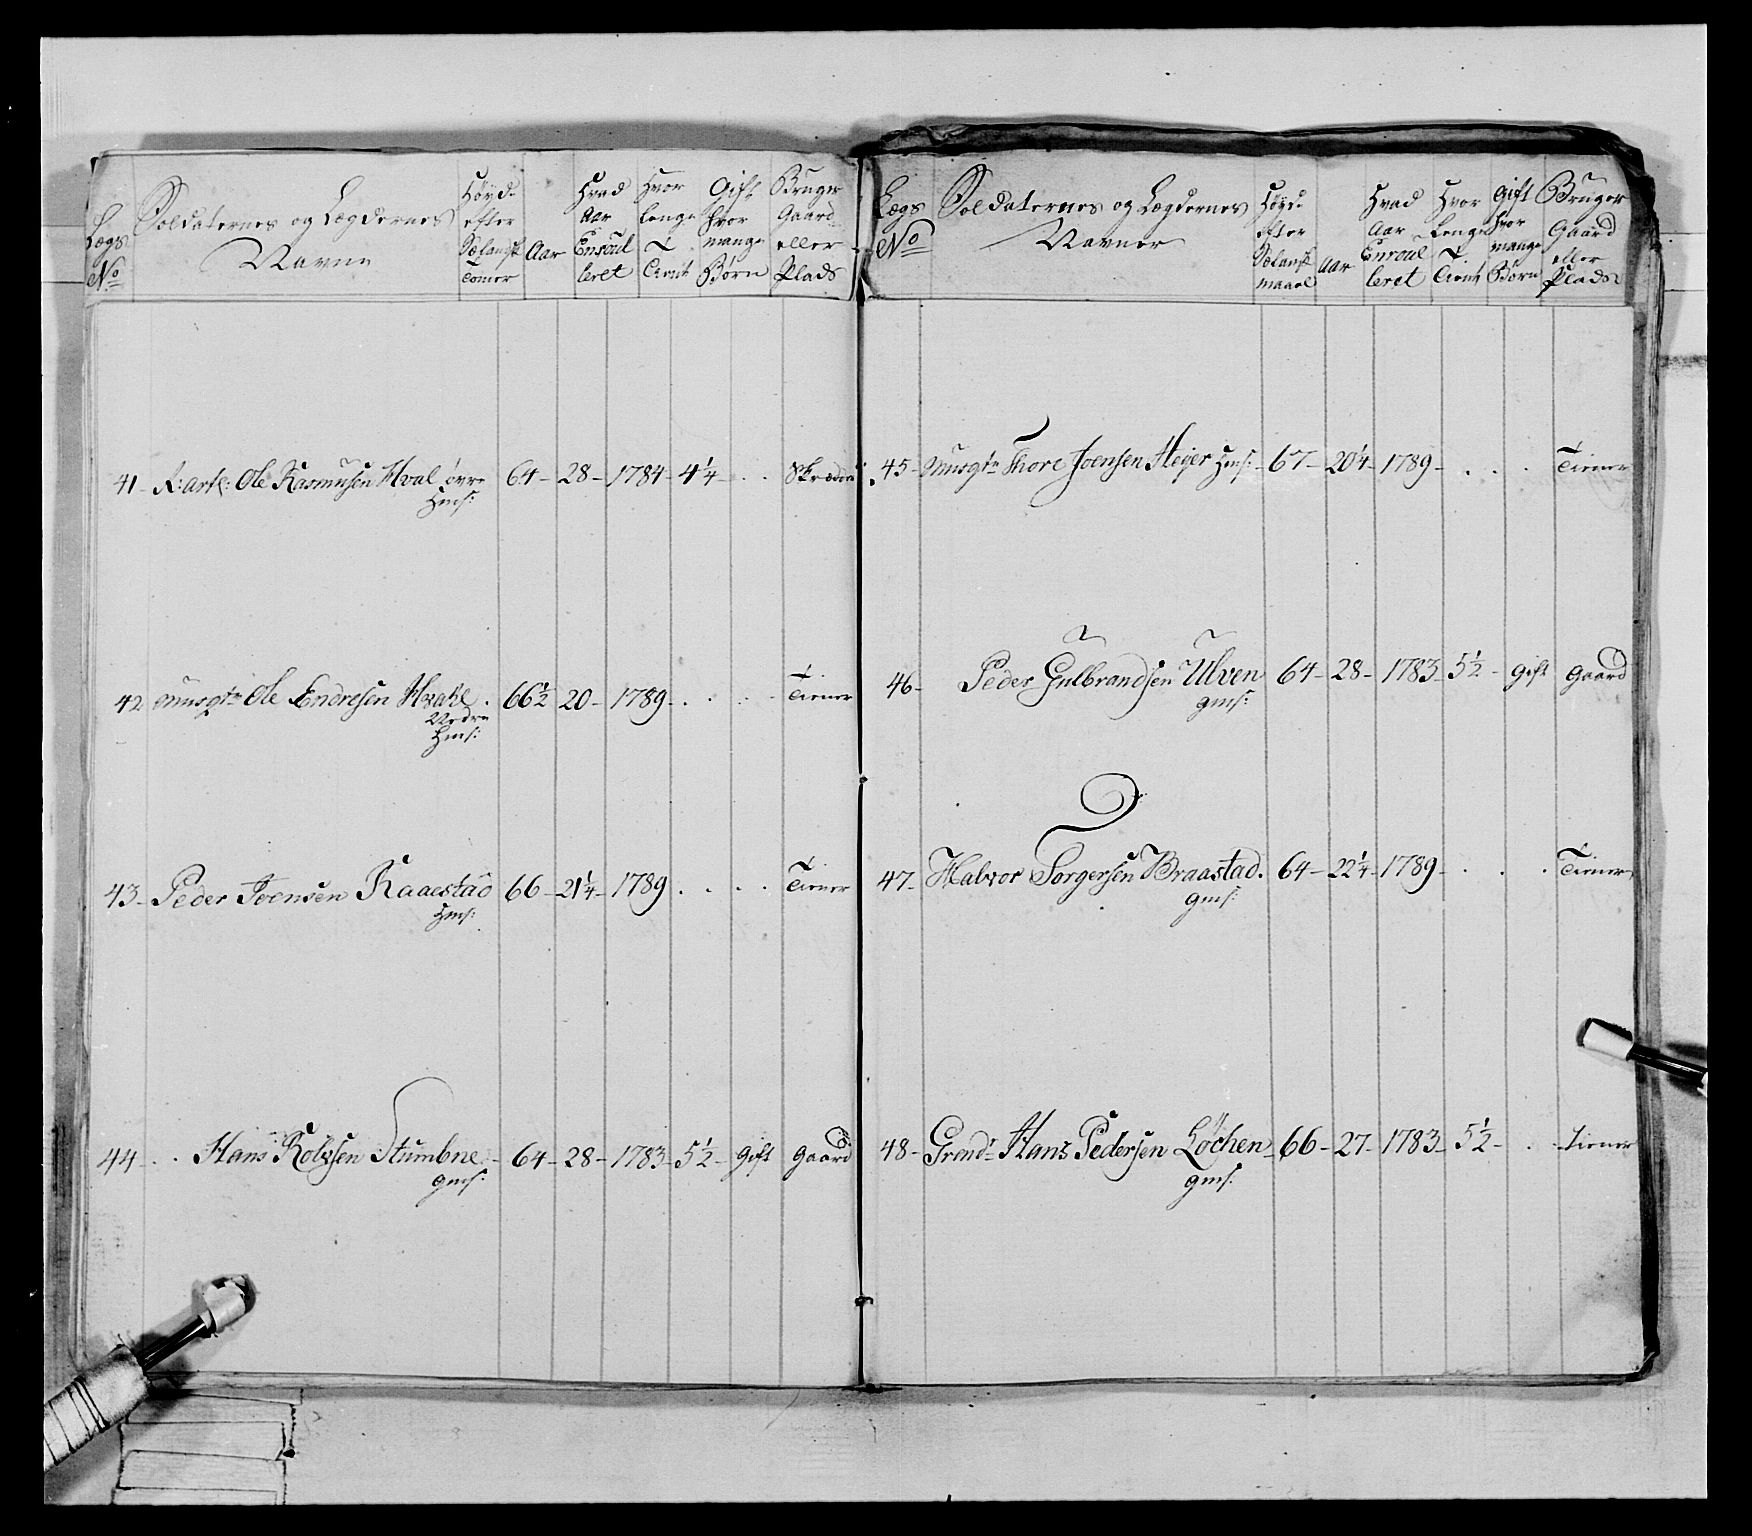 Lægs No
Soldaternes og Lægdernes Navne
Høyde efter Sælansk Tomer
Aar
Hvad Aar Enroulleret
Hvor lenge Tient
Gift hvor mange Børn
Bruger Gaard eller Plads
41 - R: art: Ole Rasmusen Hval øvre 64 - 28 - 1784 - 4 1/4 - . . Skræder
Hms:
42 Musqtr Ole Endresen Hvale . 66 1/2 20 - 1789 - . . . . Tiener
Nedre
Hms:
43 - Peder Joensen Raaestad 66 - 21 1/4 - 1789 . . . . Tiener
Hms:
44 - . Hans Rolvsen Stumbne - 64 - 28 - 1783 - 5 1/2 - Gift Gaard
Gms:
Lægs No
Soldaternes og Lægdernes Navner
Høyde efter Sælansk maael
Aar
Hvad Aar Enroulleret
Hvor Lenge Tient
Gift hvor mange Børn
Bruger Gaard eller Plads
45 - Musqtr Thore Joensen Heyer Hms: - 67 - 20 1/4 - 1789 - . . . Tiener
46 - Peder Gulbrandsen Ulven 64 - 28 - 1783 5 1/2 - Gift Gaard
Gms:
47 - Halvor Torgersen Braastad . 64 - 22 1/4 - 1789 - . . . Tiener
Gms:
48 - Grend: Hans Pedersen Løchen 66 - 27 - 1783 - 5 1/2 - . . Tiener
Gms: